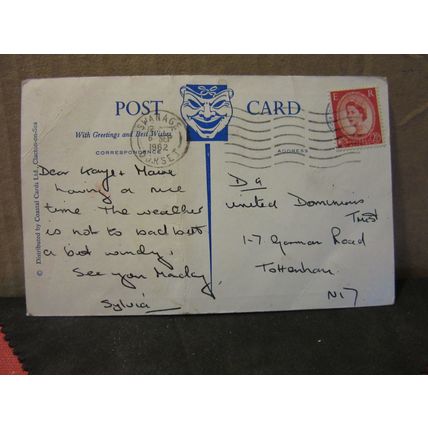 POST CARD
With Greetings and Best Wishes
CORRESPONDENCE
ADDRESS
SWANAGE
1962
DORSET
E R
© Distributed by Coastal Cards Ltd., Clacton-on-Sea
Dear Kaye + Maire
having a nice
time the weather
is not to bad but
a bit windy.
See you Monday
Sylvia
D 9
United Dominions
Trust
1-7 Garman Road
Tottenham
N17